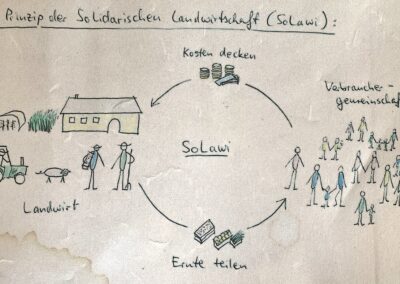 Prinzip der Solidarischen Landwirtschaft (SoLawi):
Kosten decken
Verbraucher-
gemeinschaft
SoLawi
Landwirt
Ernte teilen